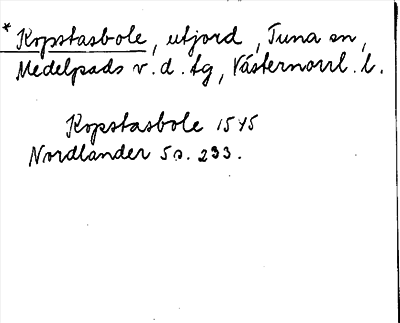 * Kopstasbole, utjord, Tuna sn,
Medelpads v. d. tg, Västernorrl. l.
Kopstasbole 1545
Nordlander 5 s. 233.